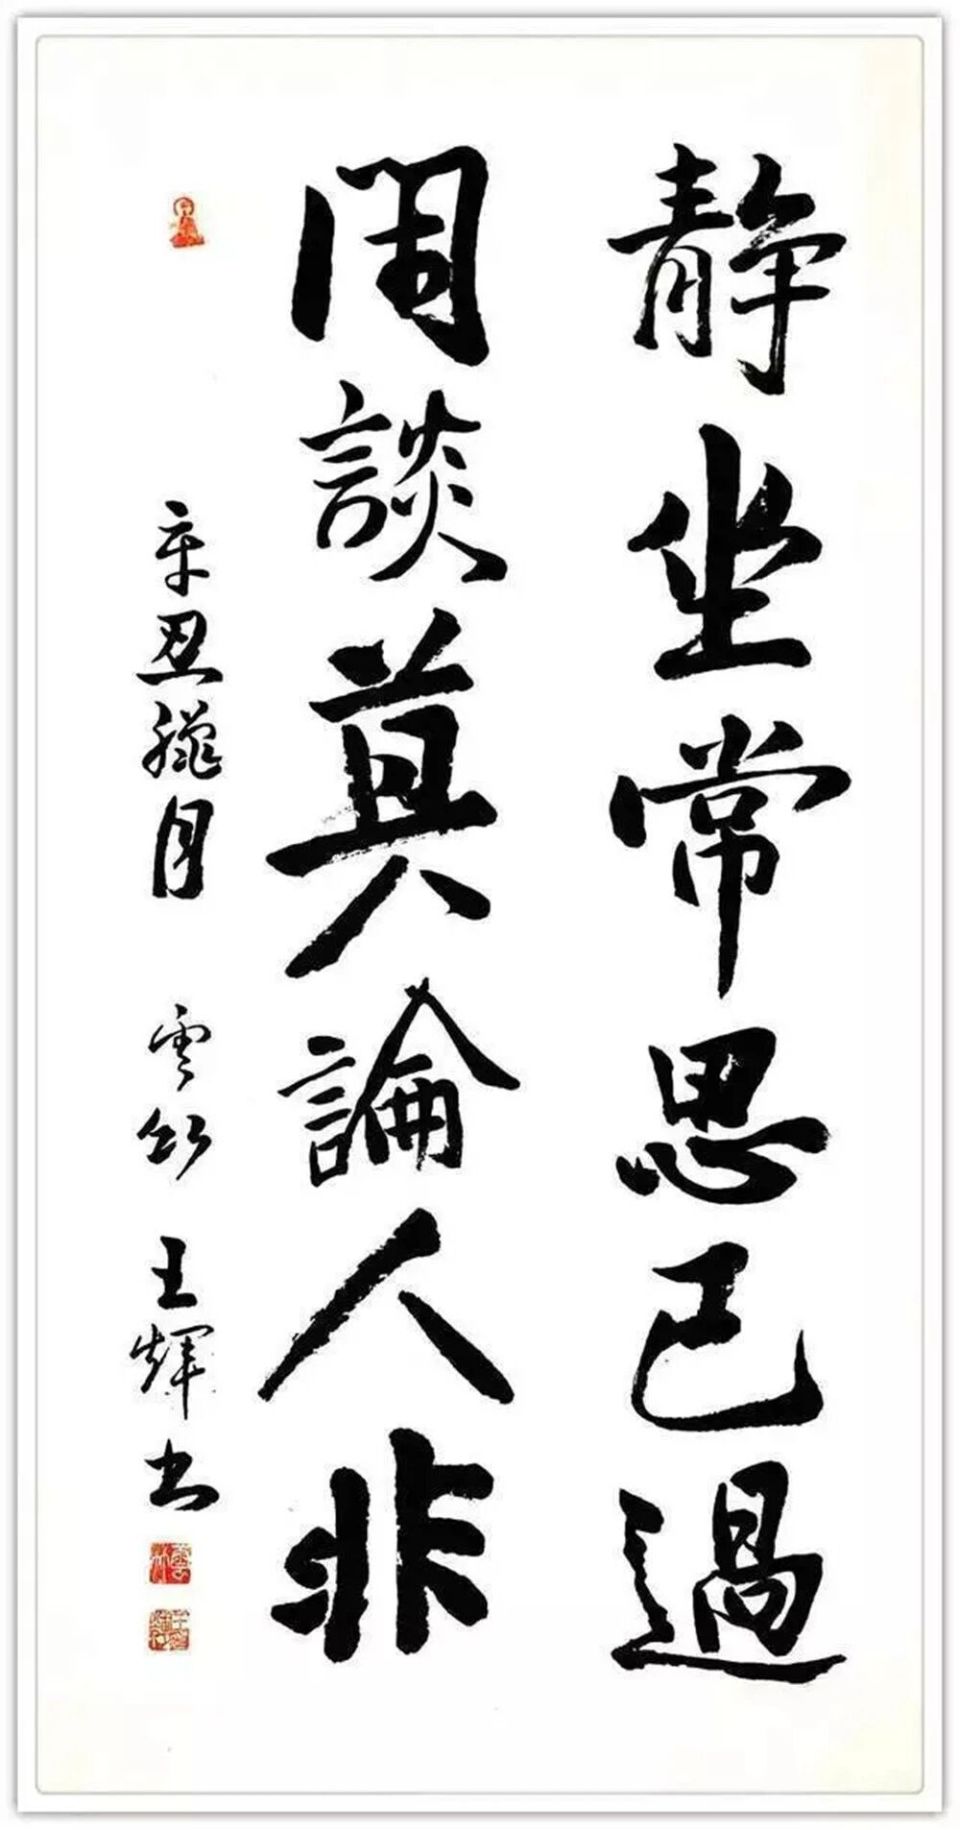 静坐常思己過
閒談莫論人非
辛丑臘月 雲 王輝书